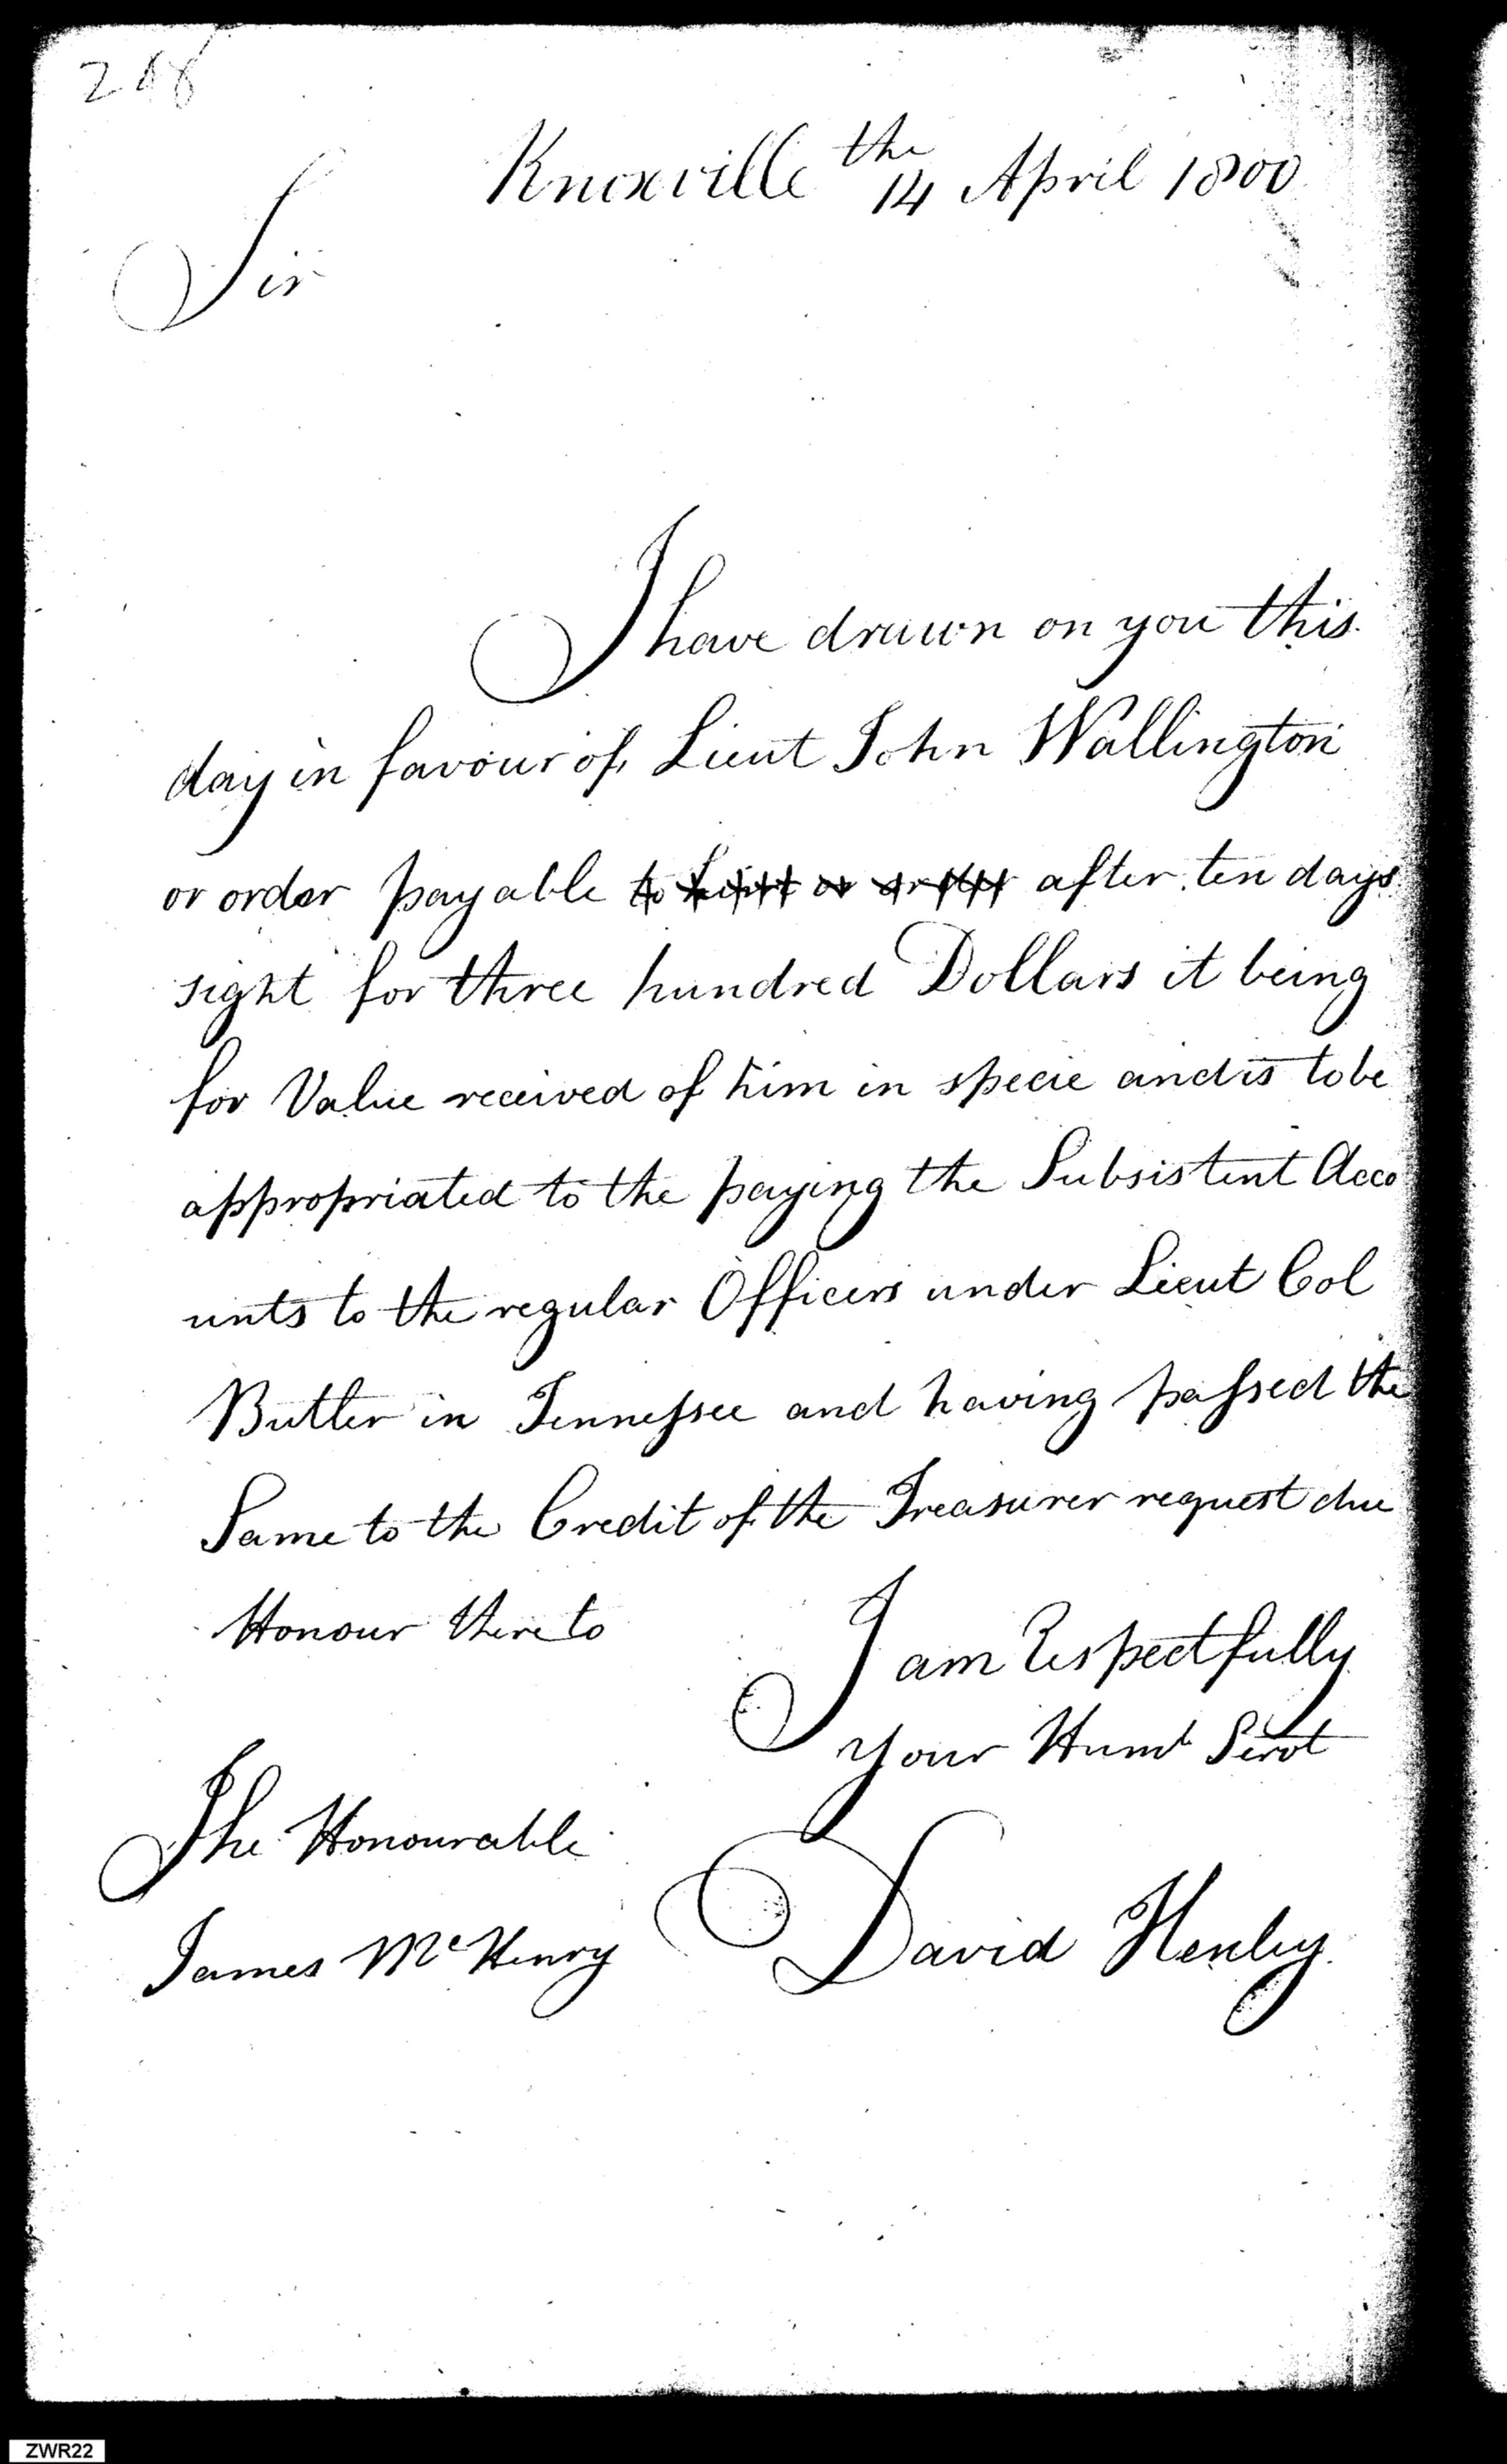 Knoxville the 14 April 1800
Sir
I have drawn on you this
day in favour of Lieut John Wallington
or order payable to Lieut or order after ten days
sight for three hundred Dollars it being
for Value received of him in specie and is to be
appropriated to the paying the Subsistent Acco
unts to the regular Officers under Lieut Col
Butler in Tennessee and having passed the
Same to the Credit of the Treasurer request due
Honour thereto
I am Respectfully
Your Humb Servt
The Honourable
James McHenry
David Henley
ZWR22